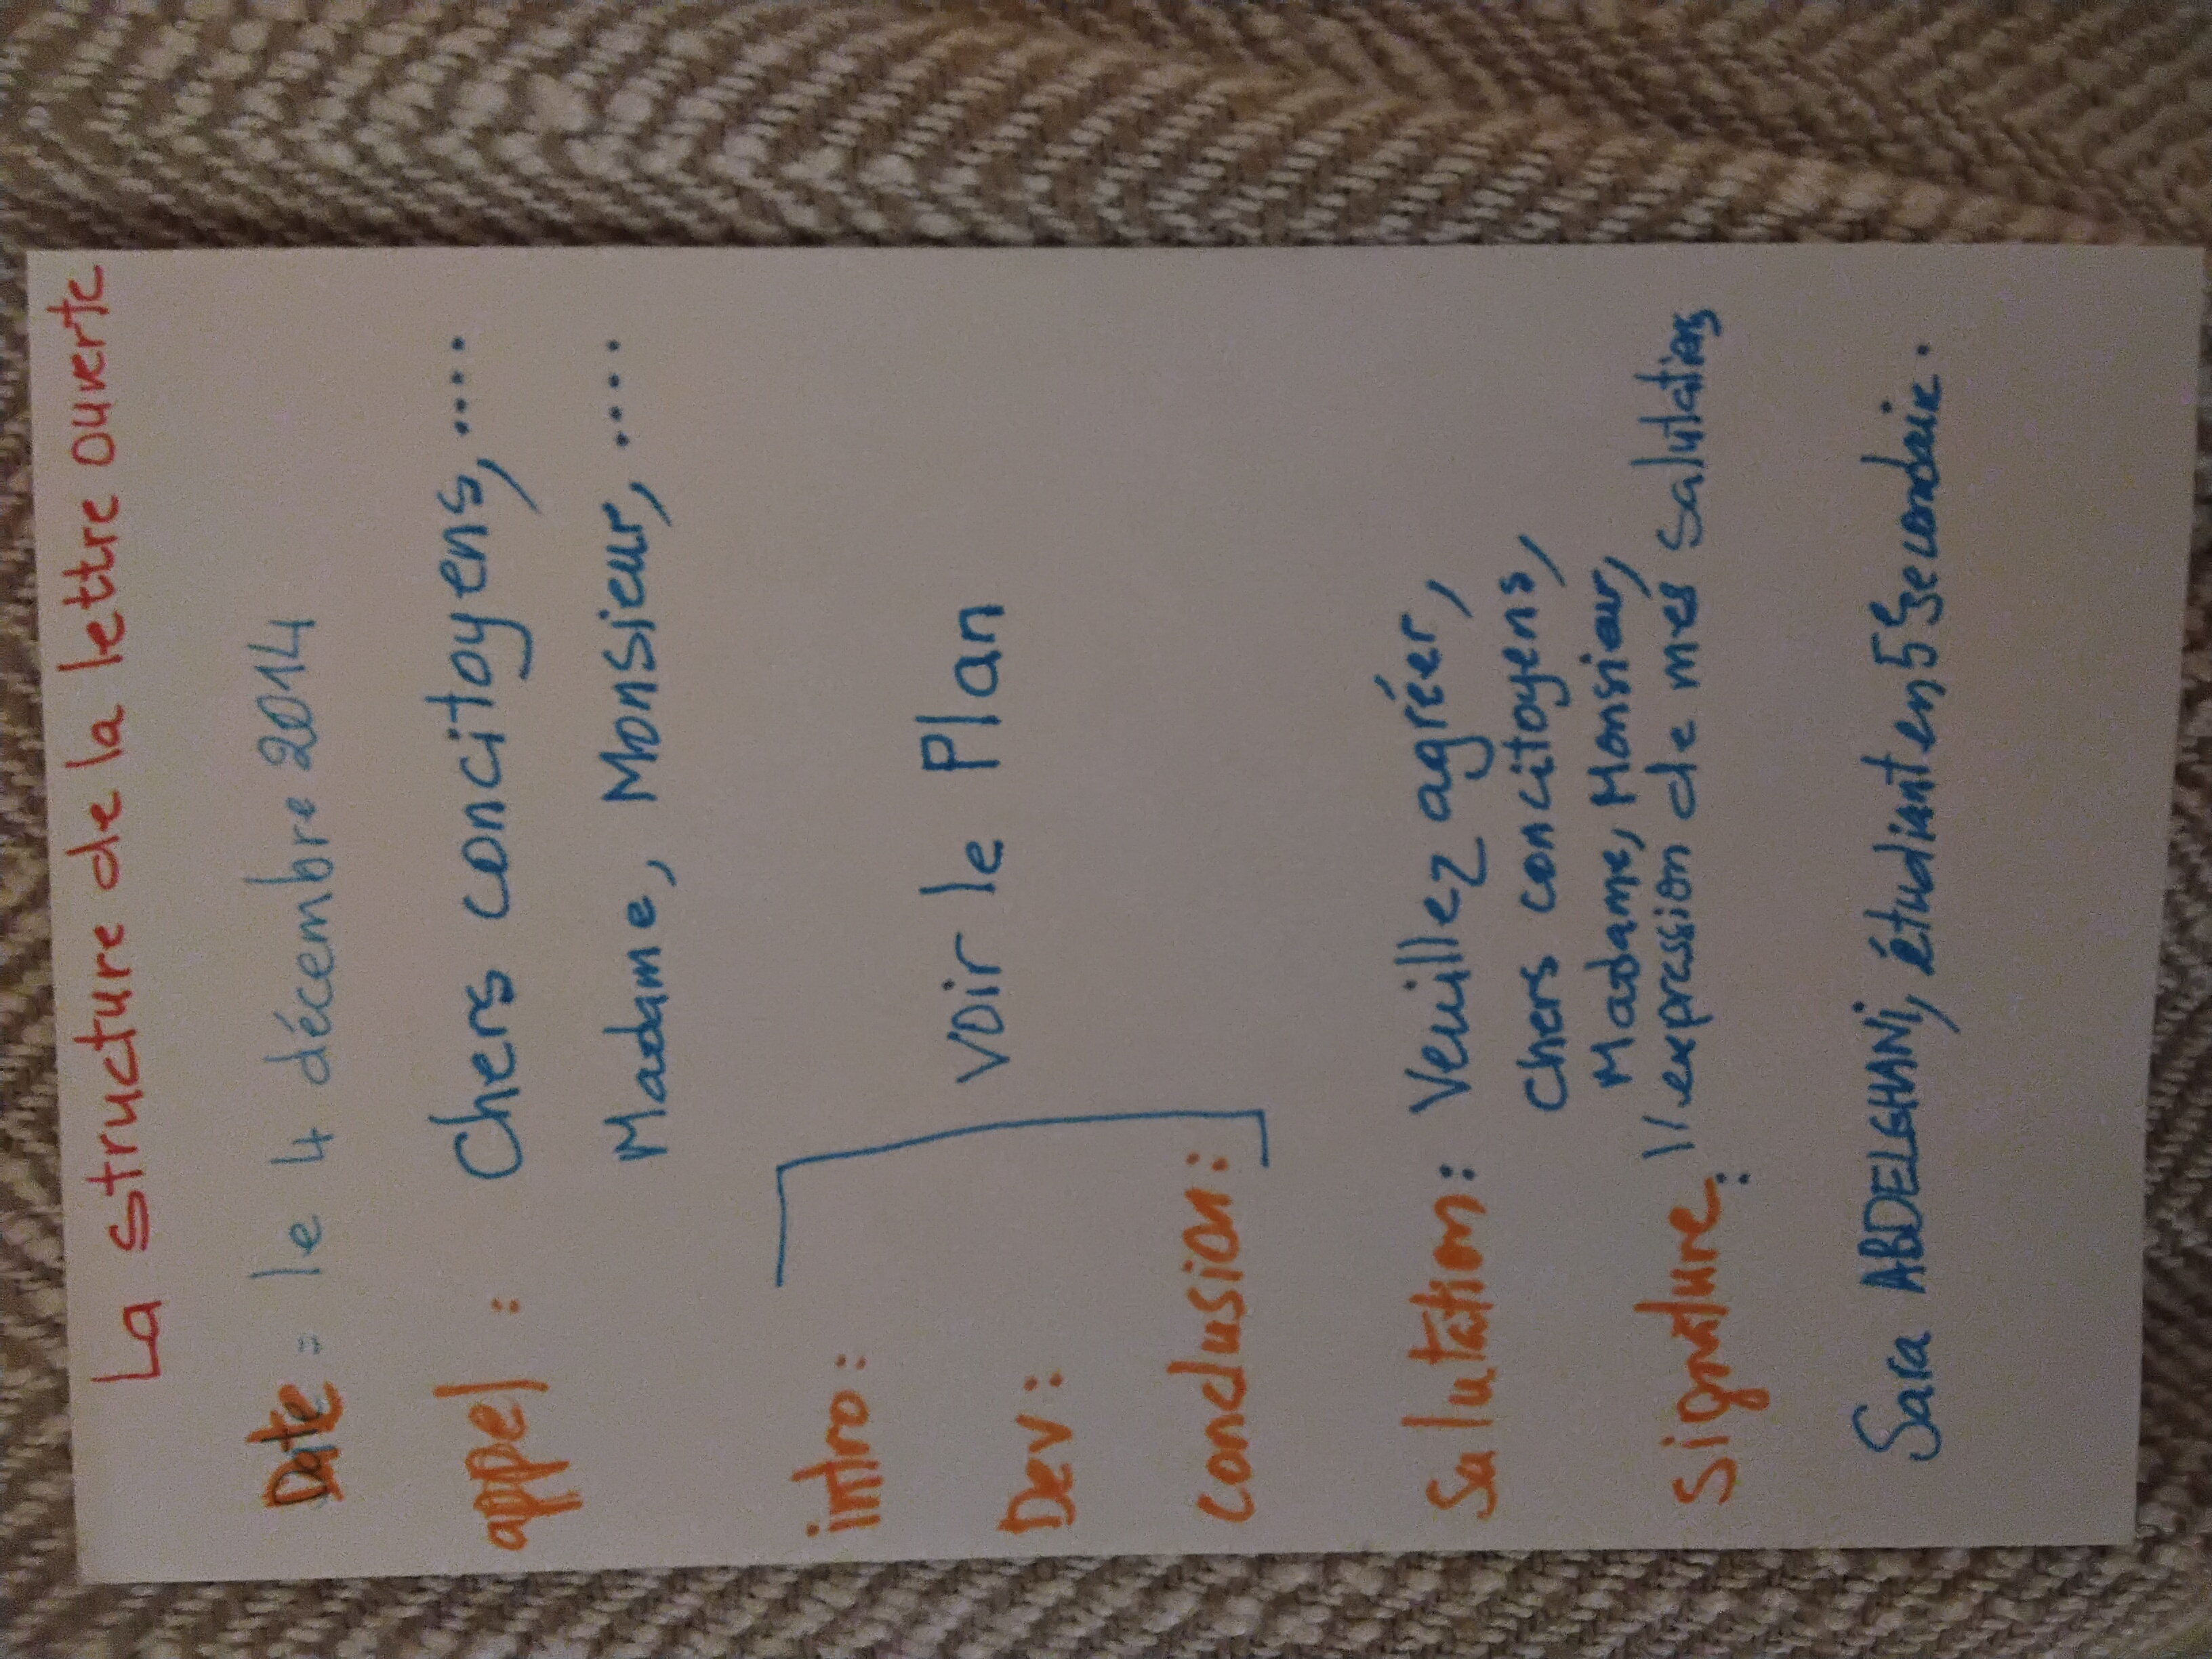 La structure de la lettre ouverte
Date : le 4 décembre 2014
appel : Chers concitoyens,....
Madame, Monsieur, ....
intro :
Dev : voir le Plan
conclusion :
Salutation : Veuillez agréer,
Chers concitoyens,
Madame, Monsieur,
l'expression de mes salutations
Signature :
Sara ABDELGHANI, étudiant en 5 secondaire.